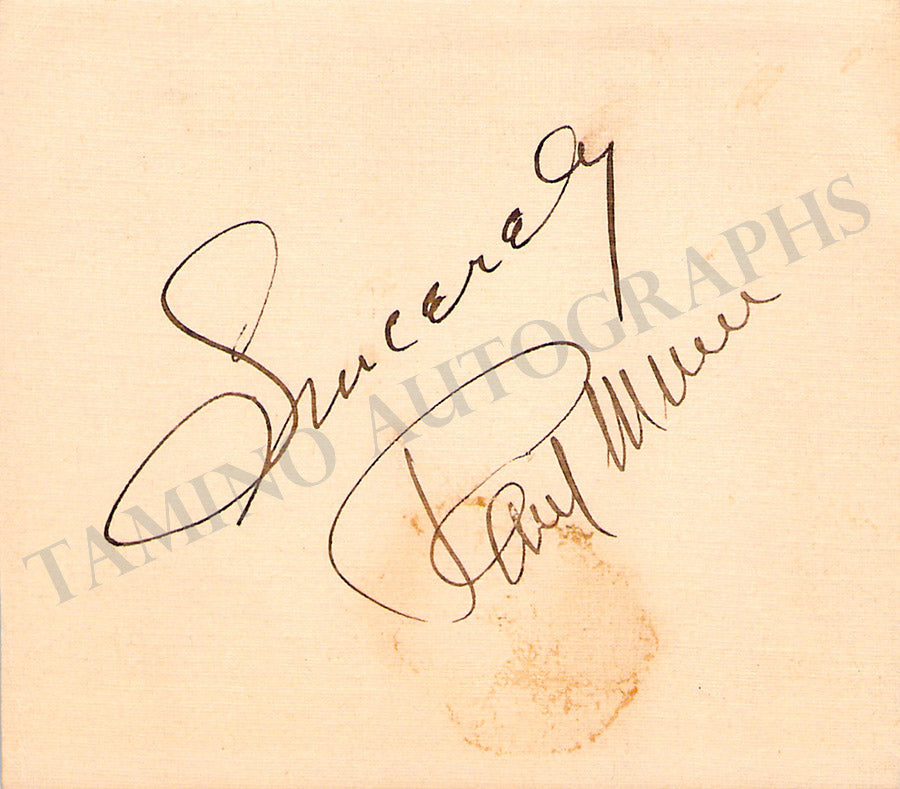 Sincerely
Paul Muni
TAMINO AUTOGRAPHS